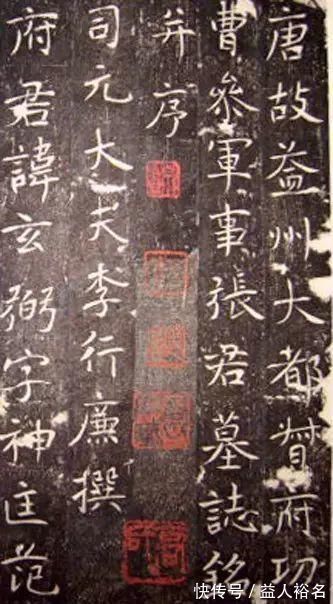 唐故益州大都督府功
曹叅軍事張君墓誌銘
并序
司元大夫李行廉撰
府君諱玄弼字神匡范
快传号 / 益人裕名